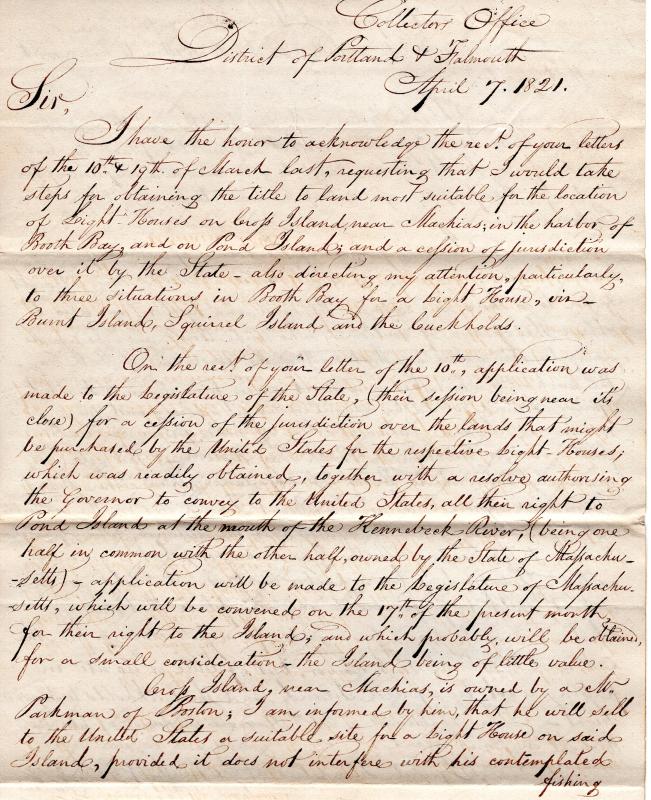 Collectors Office
District of Portland & Falmouth
April 7. 1821.
Sir,
I have the honor to acknowledge the rect. of your letters
of the 10th. & 19th. of March last, requesting that I would take
steps for obtaining the title to land most suitable for the location
of Light-Houses on Cross Island, near Machias; in the harbor of
Booth Bay, and on Pond Island; and a cession of jurisdiction
over it by the State - also directing my attention, particularly,
to three situations in Booth Bay for a Light House, viz -
Burnt Island, Squirrel Island and the Cuckholds.
On the rect. of your letter of the 10th., application was
made to the Legislature of the State, (their session being near its
close) for a cession of the jurisdiction over the lands that might
be purchased by the United States for the respective Light-Houses;
which was readily obtained, together with a resolve authorising
the Governor to convey to the United States, all their right to
Pond Island at the mouth of the Kennebeck River, (being one
half in common with the other half, owned by the State of Massachu-
-setts) - application will be made to the Legislature of Massachu-
-setts, which will be convened on the 17th. of the present month,
for their right to the Island; and which probably, will be obtained,
for a small consideration - the Island being of little value.
Cross Island, near Machias, is owned by a Mr.
Parkman of Boston; I am informed by him, that he will sell
to the United States a suitable site for a Light House on said
Island, provided it does not interfere with his contemplated
fishing